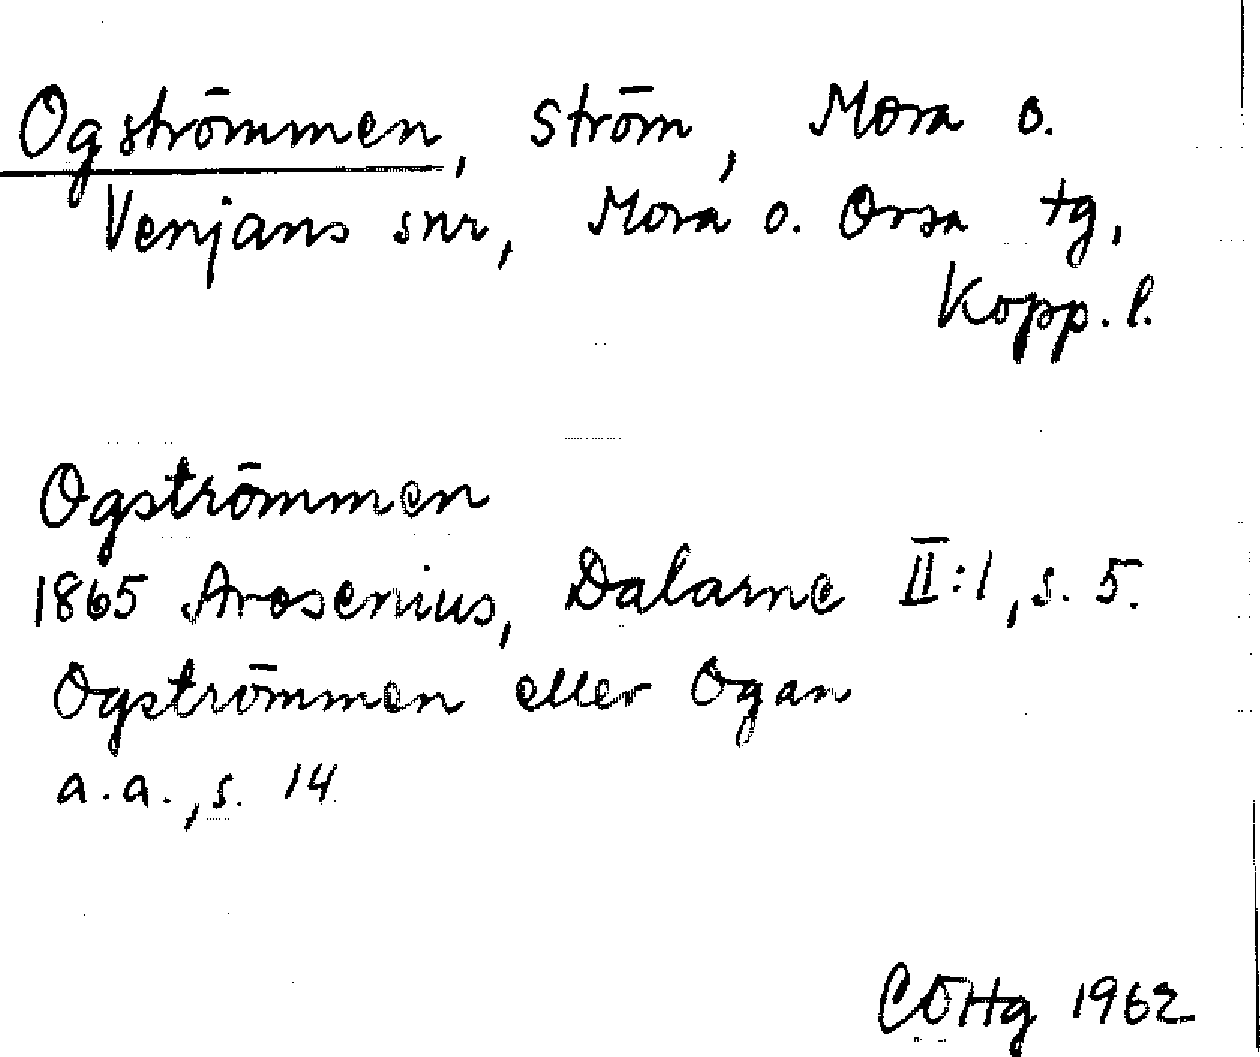 Ogströmmen, ström, Mora o.
Venjans snr, Mora o. Orsa tg,
Kopp. l.
Ogströmmen
1865 Arosenius, Dalarne II:1, s. 5.
Ogströmmen eller Ogan
a.a., s. 14
CÖHg 1962